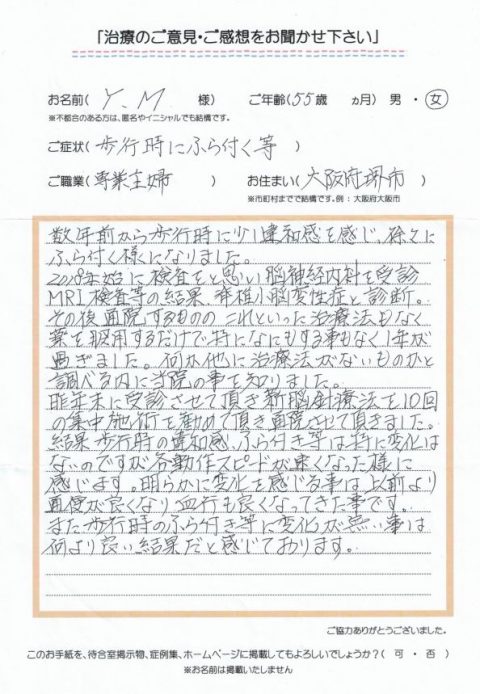 「治療のご意見・ご感想をお聞かせ下さい」
お名前( Y. M 様) ご年齢(55歳 ヵ月) 男・女
※不都合のある方は、匿名やイニシャルでも結構です。
ご症状(歩行時にふら付く等)
ご職業(専業主婦) お住まい(大阪府堺市)
※市町村までで結構です。例：大阪府大阪市
数年前から歩行時に少し違和感を感じ、徐々に
ふら付く様になりました。
2018年始に検査をと思い脳神経内科を受診
MRI検査等の結果、脊椎小脳変性症と診断。
その後通院するものの これといった治療法もなく
薬を服用するだけで特になにもする事もなく1年が
過ぎました。何か他に治療法がないものかと
調べる内に当院の事を知りました。
昨年末に受診させて頂き新脳針療法を10回
の集中施術を勧めて頂き通院させて頂きました。
結果歩行時の違和感、ふら付き等は特に変化は
ないのですが各動作スピードが速くなった様に
感じます。明らかに変化を感じる事は以前より
画便が良くなり血行も良くなってきた事です。
また歩行時のふら付き等に変化が無い事は
何より良い結果だと感じております。
ご協力ありがとうございました。
このお手紙を、待合室掲示物、症例集、ホームページに掲載してもよろしいでしょうか？( 可 ・ 否 )
※お名前は掲載いたしません